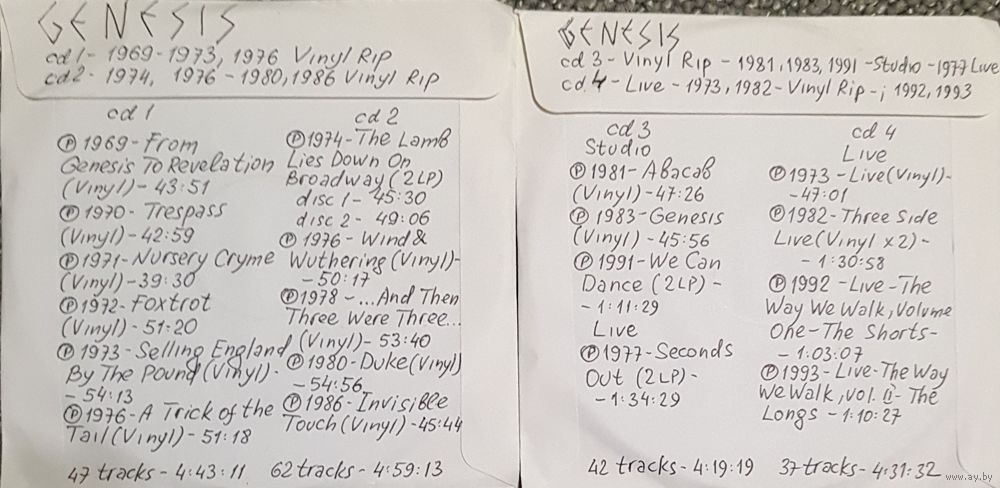 GENESIS
cd 1- 1969-1973, 1976 Vinyl Rip
cd2- 1974, 1976-1980,1986 Vinyl Rip
cd 1
Ⓟ 1969-From
Genesis To Revelation
(Vinyl)-43:51
Ⓟ 1970- Trespass
(Vinyl)-42:59
Ⓟ 1971-Nursery Cryme
(Vinyl)-39:30
Ⓟ 1972-Foxtrot
(Vinyl)-51:20
Ⓟ 1973-Selling England
By The Pound (Vinyl)-
-54:13
Ⓟ 1976-A Trick of the
Tail (Vinyl)-51:18
47 tracks-4:43:11
cd 2
Ⓟ 1974-The Lamb
Lies Down On
Broadway (2LP)
disc 1-45:30
disc 2- 49:06
Ⓟ 1976-Wind &
Wuthering (Vinyl)-
-50:17
Ⓟ 1978-...And Then
Three Were Three...
(Vinyl)-53:40
Ⓟ 1980-Duke (Vinyl)
-54:56
Ⓟ 1986-Invisible
Touch (Vinyl)-45:44
62 tracks-4:59:13
GENESIS
cd 3-Vinyl Rip-1981,1983,1991-Studio-1977 Live
cd 4-Live-1973,1982-Vinyl Rip-; 1992,1993
cd 3
Studio
Ⓟ 1981-Abacab
(Vinyl)-47:26
Ⓟ 1983-Genesis
(Vinyl)-45:56
Ⓟ 1991-We Can
Dance (2LP)-
-1:11:29
Live
Ⓟ 1977-Seconds
Out (2LP)-
-1:34:29
42 tracks-4:19:19
cd 4
Live
Ⓟ 1973-Live (Vinyl)-
-47:01
Ⓟ 1982-Three Side
Live (Vinyl x2)-
-1:30:58
Ⓟ 1992-Live-The
Way We Walk, Volume
One-The Shorts-
-1:03:07
Ⓟ 1993-Live-The Way
We Walk, vol. ii-The
Longs-1:10:27
37 tracks-4:31:32
www.ay.by